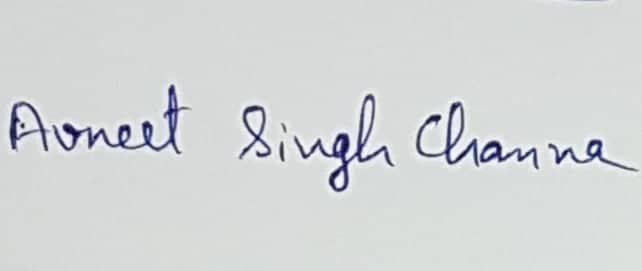 Avneet Singh Channa